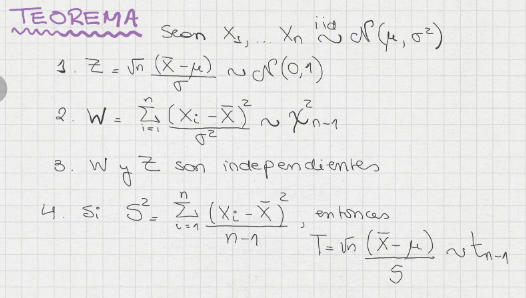 TEOREMA Sean X₁, ... Xₙ iid ~ N(μ, σ²)
1. Z = √n (X̄-μ)/σ ~ N(0,1)
2. W = Σᵢ₌₁ⁿ (Xi - X̄)²/σ² ~ χ²ₙ₋₁
3. W y Z son independientes
4. Si S² = Σᵢ₌₁ⁿ (Xi - X̄)²/(n-1), entonces
T = √n (X̄-μ)/S ~ tₙ₋₁